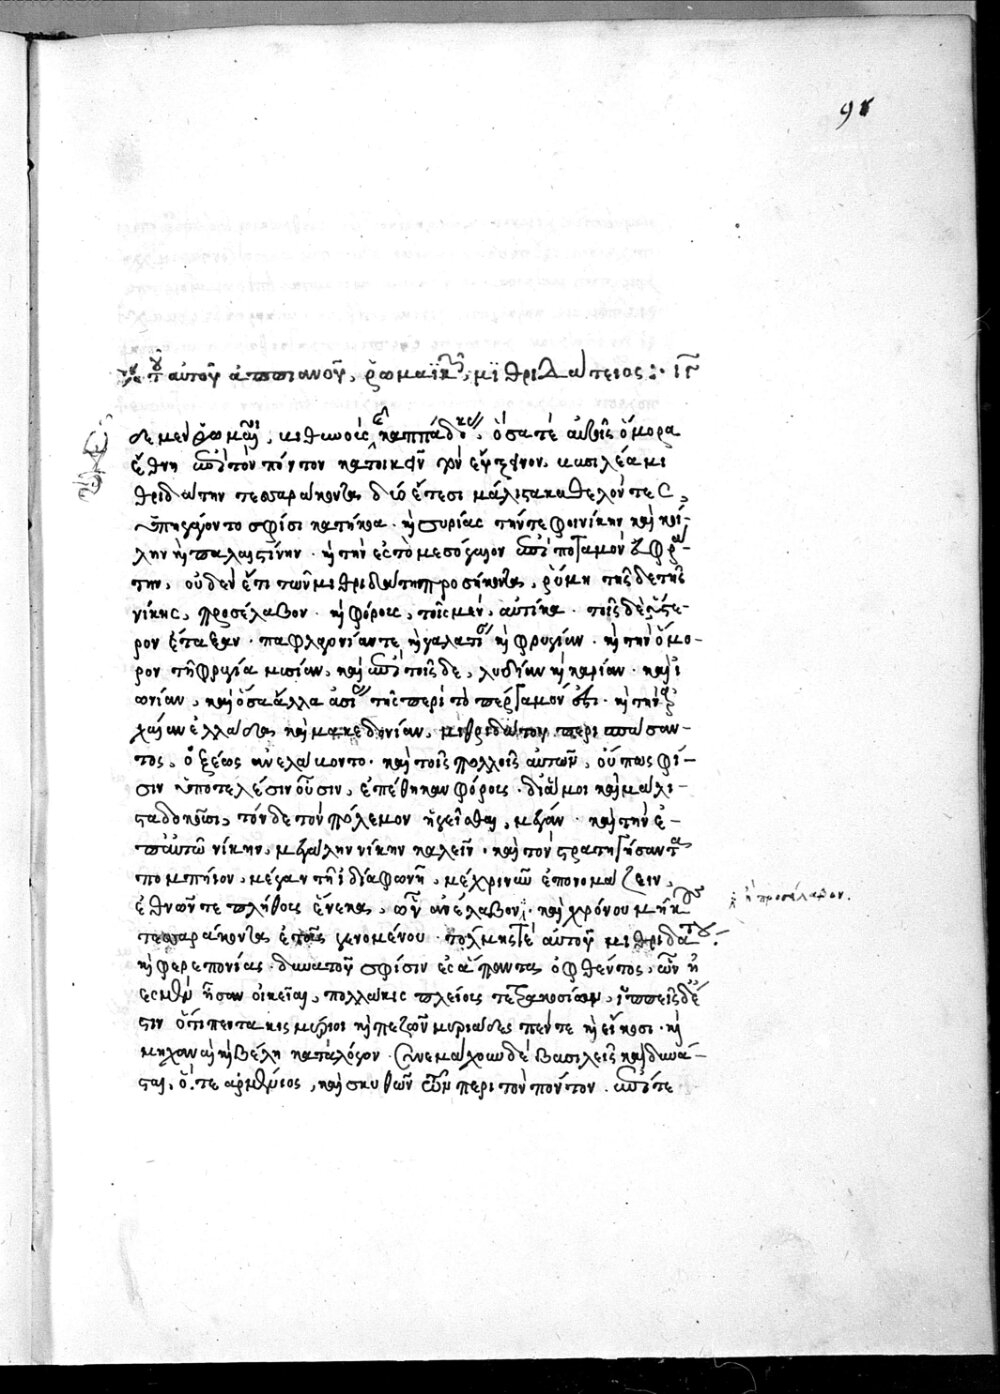 91
τοῦ αὐτοῦ ἀππιανοῦ, ῥωμαϊκῶν, μιθριδάτειος :· ιγ
ὧδε μὲν ῥωμαῖοι, βιθυνοὺς καππαδόκας, ὅσα τὲ αὐτοῖς ὅμορα
ἔθνη ἐπὶ τὸν πόντον κατοικεῖ τὸν εὔξεινον, βασιλέα μι
θριδάτην τεσσαράκοντα δύο ἔτεσι μάλιστα καθελόντες,
ὑπηγάγοντο σφίσι κατήκοα. καὶ συρίας τήν τε φοινίκην καὶ κοί-
λην καὶ παλαιστίνην. καὶ τὴν ἐς τὸ μεσόγαιον ἐπὶ ποταμὸν εὐφρά-
την, οὐδὲν ἔτι τῶν μιθριδάτη προσήκοντα, ῥύμη τῆς δε τῆς
νίκης, προσέλαβον. καὶ φόρους, τοῖς μὲν, αὐτίκα. τοῖς δὲ ὕστε-
ρον ἔταξαν. παφλαγονίαν τε καὶ γαλατίαν καὶ φρυγίαν. καὶ τὴν ὅμο-
ρον τῆ φρυγία μυσίαν, καὶ ἐπὶ τοῖς δε, λυδίαν καὶ καρίαν. καὶ ἰ
ωνίαν, καὶ ὅσα ἄλλα ἀσίας τῆς περὶ τὸ πέργαμόν ἐστι. καὶ τὴν ἀρ
χαίαν ἑλλάδα καὶ μακεδονίαν, μιθριδάτου περισπάσαν-
τος, ὀξέως ἀνελάμοντο. καὶ τοῖς πολλοῖς αὐτῶν, οὔπω σφί-
σιν ὑποτελέσιν οὖσιν, ἐπέθηκαν φόρους. διἅ μοι καὶ μάλι-
στα δοκοῦσι, τόνδε τὸν πόλεμον ἡγεῖσθαι, μέγαν. καὶ τὴν ἐ-
π᾽αὐτῶ νίκην, μεγάλην νίκην καλεῖν. καὶ τὸν στρατηγήσαντα
πομπήιον, μέγαν τῆ ἰδία φωνῆ, μέχρι νῦν ἐπονομάζειν,
ἐθνῶν τε πλήθους ἕνεκα, ὧν ἀνέλαβον. καὶ χρόνου μήκους
τεσσαράκοντα ἐτοῖς γενομένου. τόλμης τὲ αὐτοῦ μιθριδάτου.
καὶ φερεπονίας. δυνατοῦ σφίσιν ἐς ἅπαντα ὀφθέντος, ὧν ἡ
ες μὲν ἦσαν οἰκεῖαι, πολλάκις πλείους τετρακοσίων, ἱππεῖς δέ
στιν ὅτι πεντάκις μύριοι καὶ πεζῶν μυριάδες πέντε καὶ εἴκοσι. καὶ
μηχαναὶ καὶ βέλη κατὰ λόγον. συνεμάχουν δὲ βασιλεῖς καὶ δυνά-
σται, ὅ, τε ἀρμένιος, καὶ σκυθῶν τῶν περὶ τὸν πόντον. ἐπί τε
ἢ προσέλαβον.